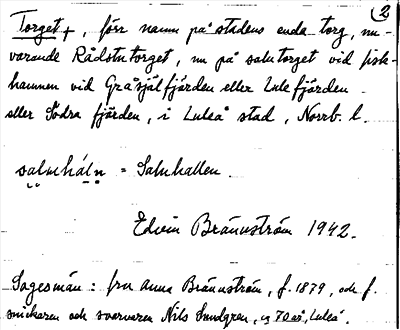 2
Torget +, förr namn på stadens enda torg, nu-
varande Rådstutorget, nu på salutorget vid fisk-
hamnen vid Gråsjälfjärden eller Lulefjärden
eller Södra fjärden, i Luleå stad, Norrb. l.
saluháln = Saluhallen.
Edvin Brännström 1942.
Sagesmän: fru Anna Brännström, f. 1879, och f.
snickaren och svarvaren Nils Sundgren, 70 år, Luleå.